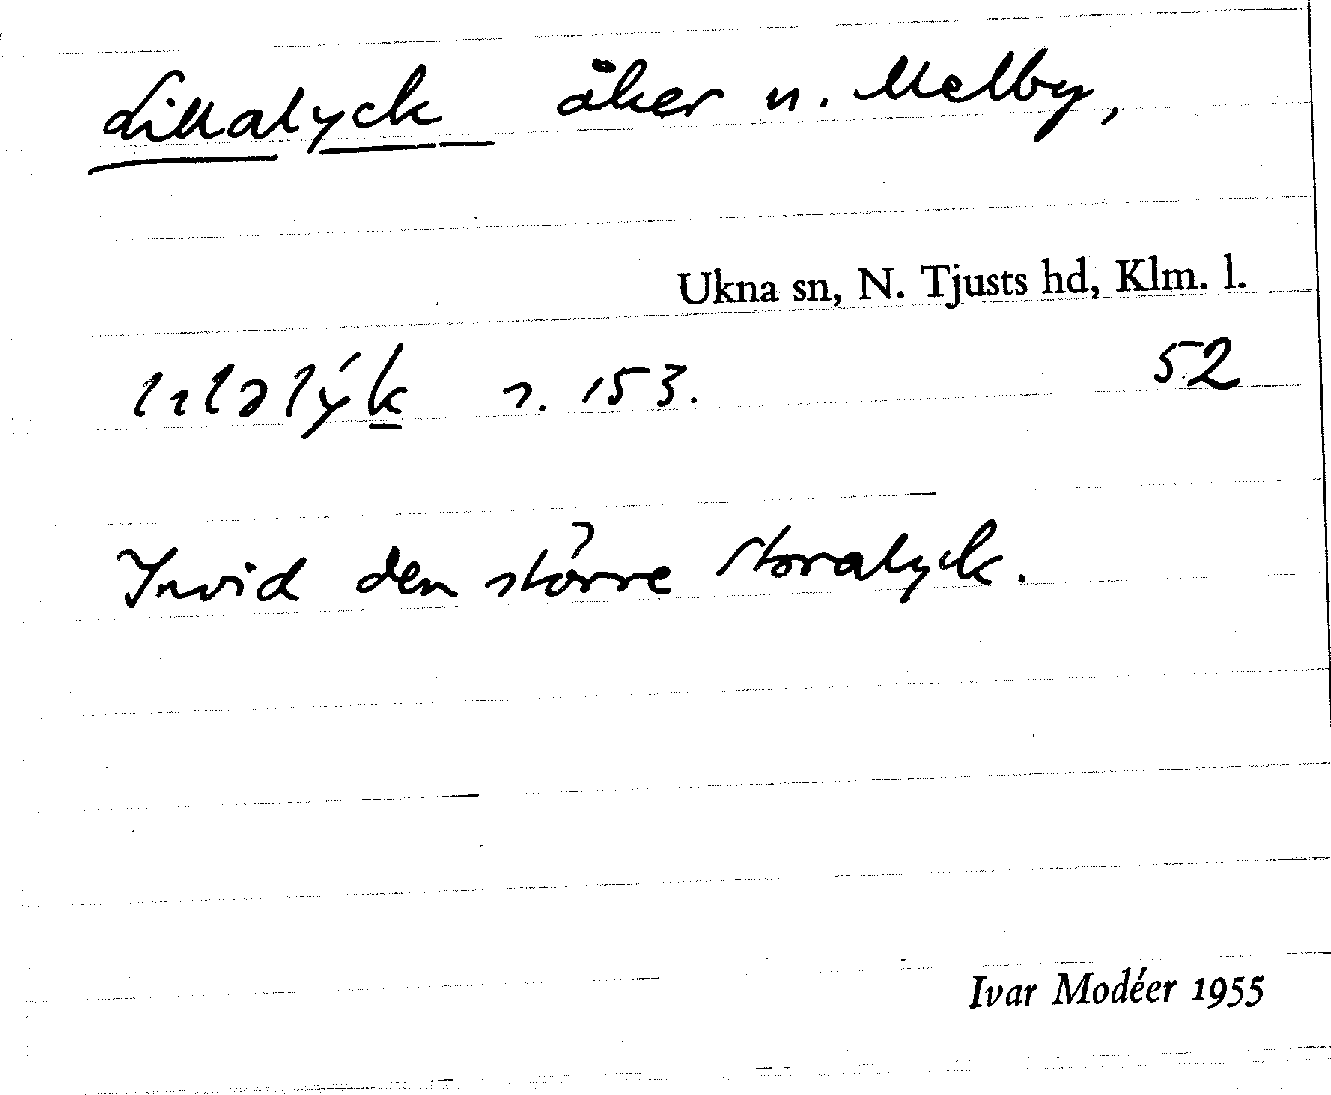 Lillalyck åker n. Melby,
Ukna sn, N. Tjusts hd, Klm. l.
lɪləlýk s. 153. 52
Invid den större Storalyck.
Ivar Modéer 1955